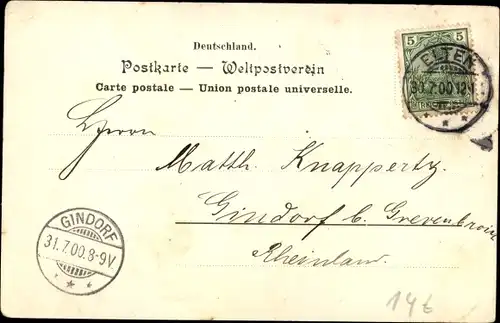 Deutschland.
Postkarte — Weltpostverein
Carte postale — Union postale universelle.
5 5
ELTEN
30.7.00.12-1
Herrn
Matth. Knappertz.
Gindorf b. Grevenbroich
Rheinland.
GINDORF
31.7.00.8-9V
14t